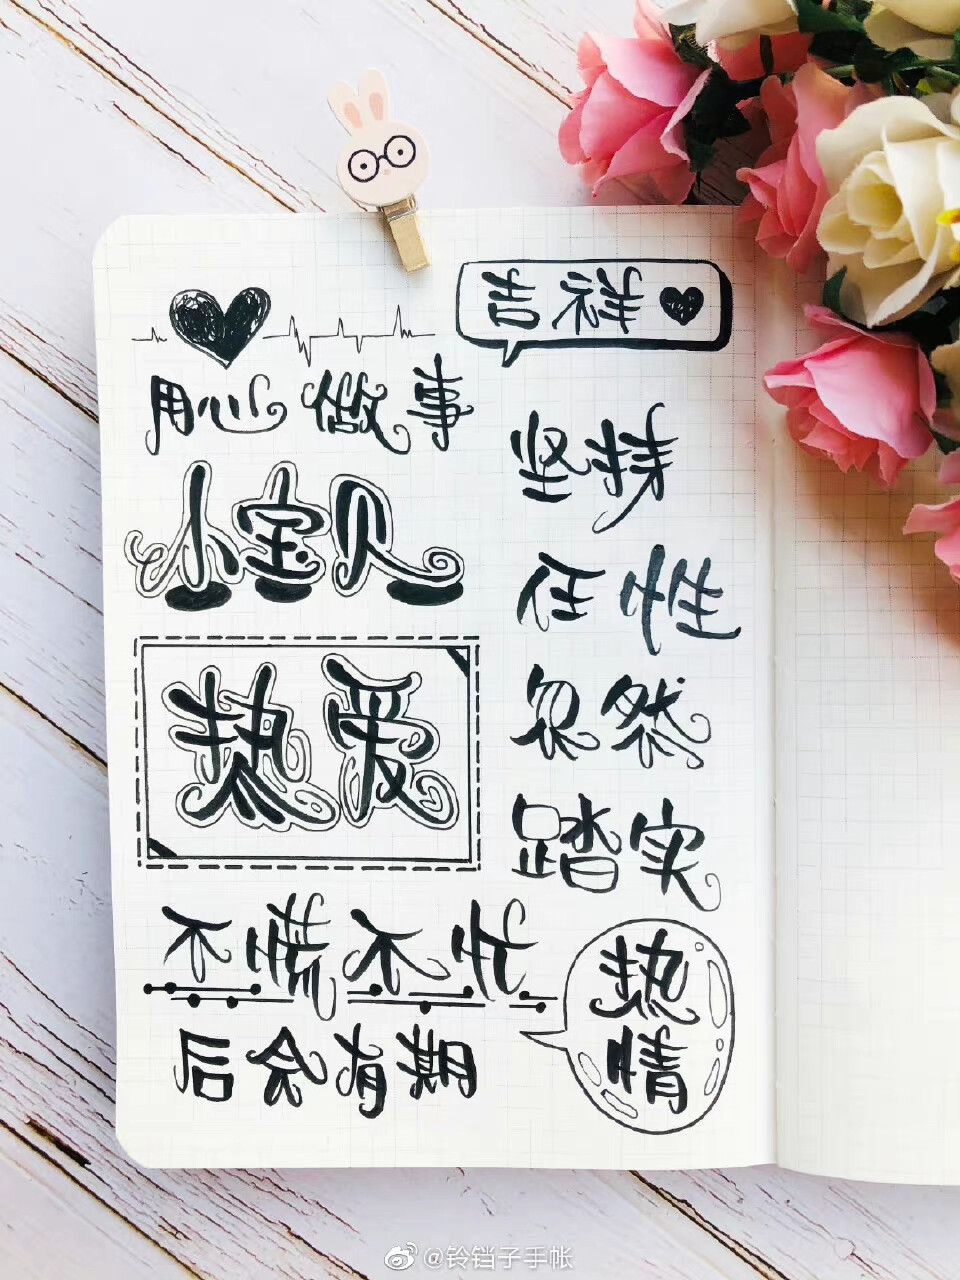 用心做事
小宝贝
热爱
不慌不忙
后会有期
吉祥
坚持
任性
忽然
踏实
热情
@铃铛子手帐